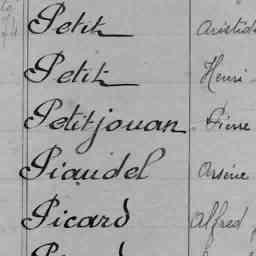 Petit Aristid
Petit Henri
Petitjouan Pierre
Piaudel Arsène
Picard Alfred